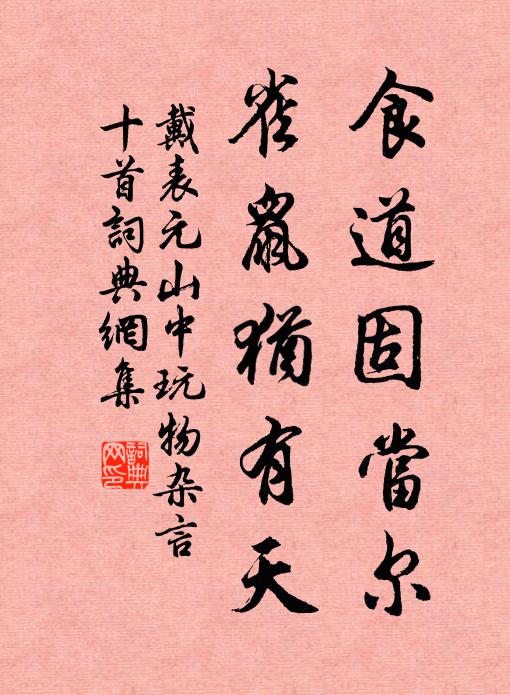 食道固當尔
雀鼠猶有天
戴表元山中玩物杂言
十首詞典網集
詞典網印